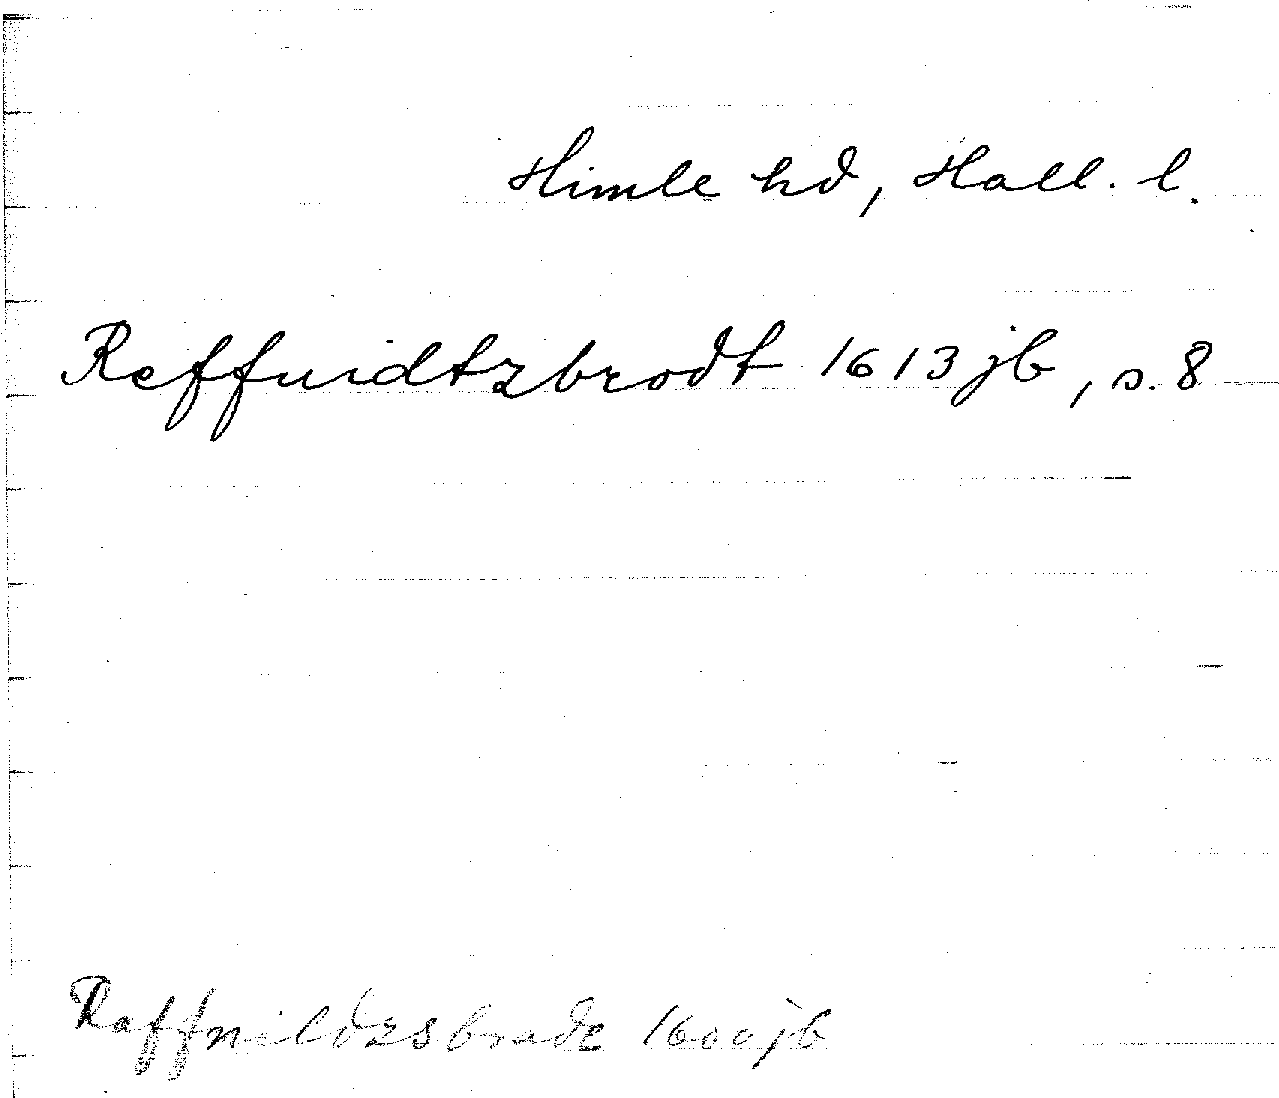 Himle hd, Hall. l.
Reffuidtzbrodt 1613 jb, s. 8
Raffnildzsbrade 1600 jb